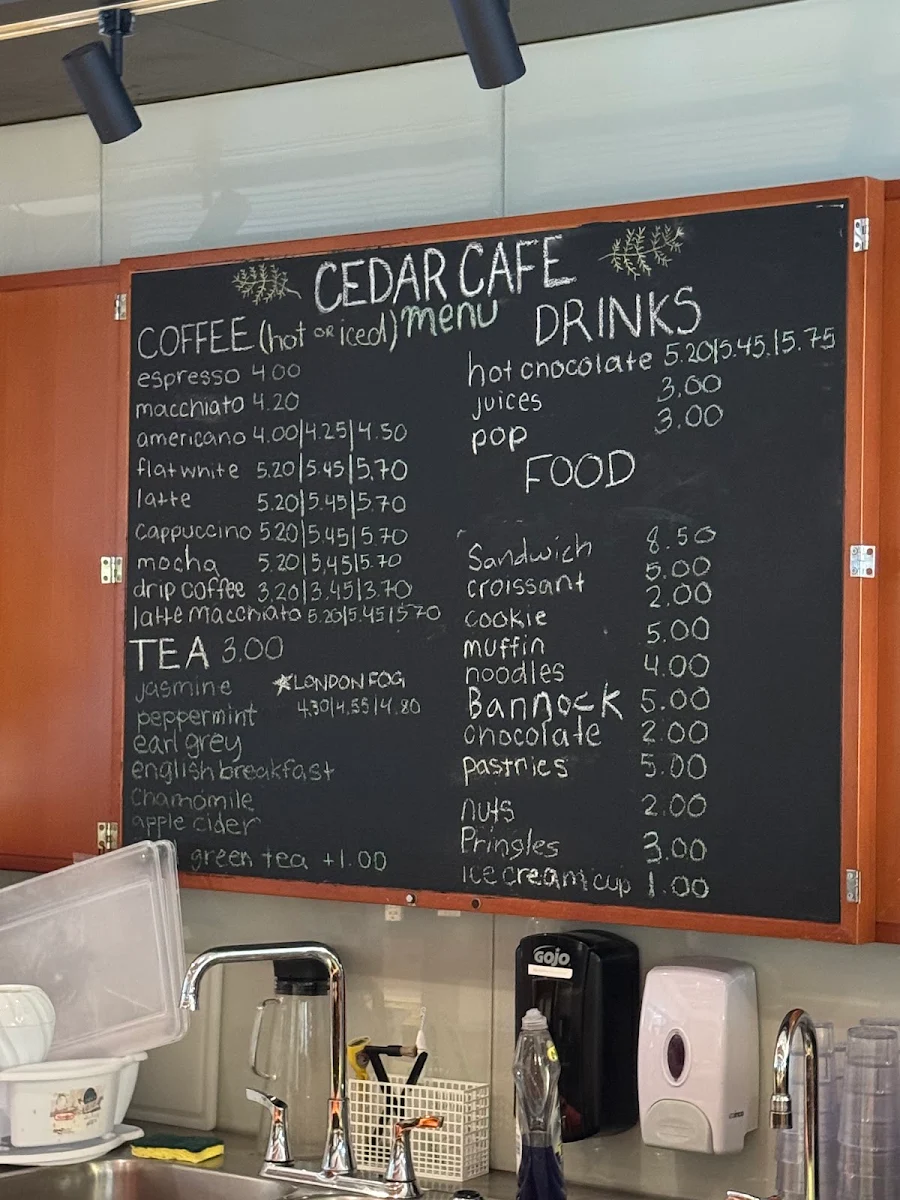 CEDAR CAFE
menu
COFFEE (hot OR iced)
espresso 4.00
macchiato 4.20
americano 4.00|4.25|4.50
flat white 5.20|5.45|5.70
latte 5.20|5.45|5.70
cappuccino 5.20|5.45|5.70
mocha 5.20|5.45|5.70
drip coffee 3.20|3.45|3.70
latte Macchiato 5.20|5.45|5.70
TEA 3.00
jasmine
peppermint
earl grey
english breakfast
chamomile
apple cider
green tea +1.00
★LONDON FOG
4.30|4.55|4.80
DRINKS
hot chocolate 5.20|5.45|5.75
juices 3.00
pop 3.00
FOOD
Sandwich 8.50
croissant 5.00
cookie 2.00
muffin 5.00
noodles 4.00
Bannock 5.00
chocolate 2.00
pastries 5.00
nuts 2.00
Pringles 3.00
ice cream cup 1.00
GOJO